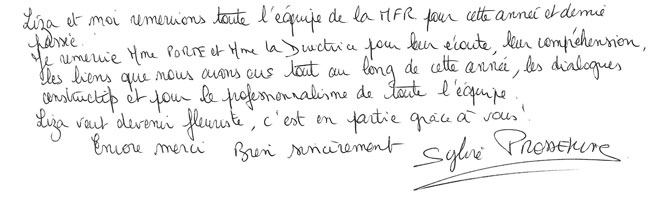 Liza et moi remercions toute l'équipe de la MFR pour cette année et demie
passée.
Je remercie Mme PORTE et Mme la Directrice pour leur écoute, leur compréhension,
les liens que nous avons eus tout au long de cette année, les dialogues
constructifs et pour le professionnalisme de toute l'équipe.
Liza veut devenir fleuriste, c'est en partie grâce à vous!
Encore merci Bien sincèrement Sylvie